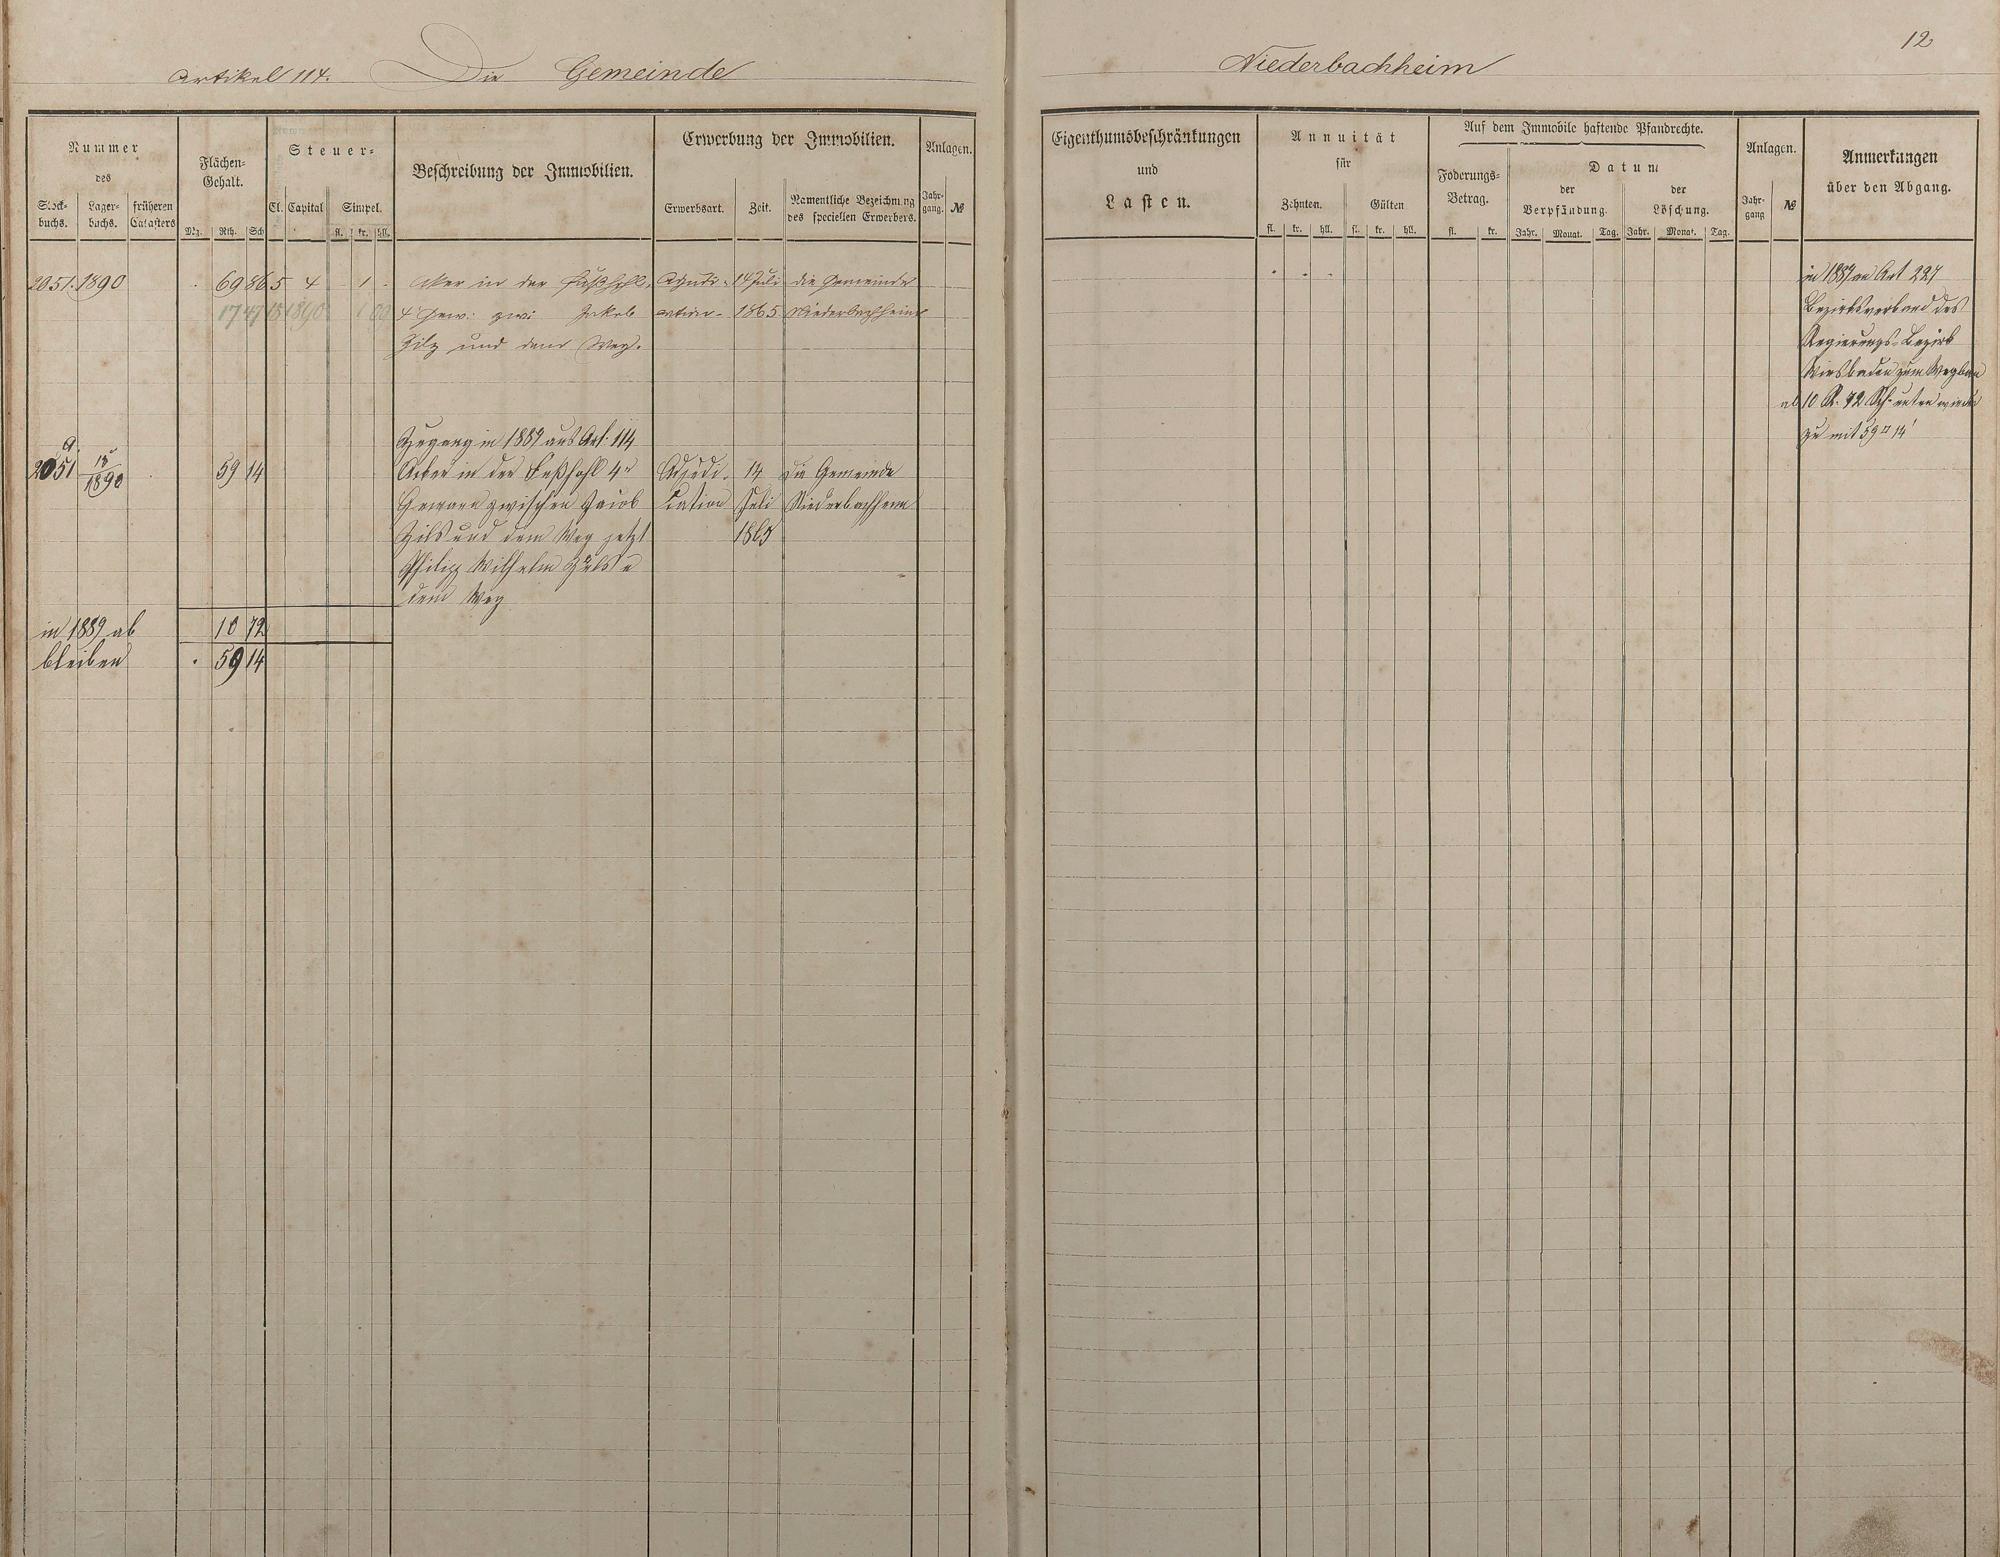 12
Artikel 114. Die Gemeinde Niederbachheim
Nummer
des
Stock-
buchs.
Lager-
buchs.
früheren
Catasters
Flächen-
Gehalt.
Mg. Rth. Sch
Steuer-
Cl. Capital Simpel.
fl. kr. hll.
Beschreibung der Immobilien.
Erwerbung der Immobilien.
Erwerbsart. Zeit.
Namentliche Bezeichnung
des speciellen Erwerbers.
Anlagen.
Jahr-
gang. №
Eigenthumsbeschränkungen
und
Lasten.
Annuität
für
Zehnten. Gülten
fl. kr. hll. fl. kr. hll.
Auf dem Immobile haftende Pfandrechte.
Foderungs-
Betrag.
fl. kr.
Datum
der
Verpfändung.
der
Löschung.
Jahr. Monat. Tag. Jahr. Monat. Tag.
Anlagen.
Jahr-
gang №
Anmerkungen
über den Abgang.
2051. 1890 69 86 5 4 1 Aker in der 14 Juli die Gemeinde
17 47 4 Gew: zwi Jakob 1865 Niederbachheim
Zilz und dem Weg.
in 1889 an Art 227
Bezirksverband des
Regierungs-Bezirk
Wiesbaden zum Wegbau
ab 10 R. 72 Sch. unten wieder
zu mit 59 14
Zugang in 1889 aus Art: 114
a
2051 1890 59 14 Acker in der 4r 14 die Gemeinde
Gewann zwischen Jacob Juli Niederbachheim
und dem Weg jetzt 1865
Philipp Wilhelm
dem Weg
in 1889 ab 10 72
bleiben 59 14